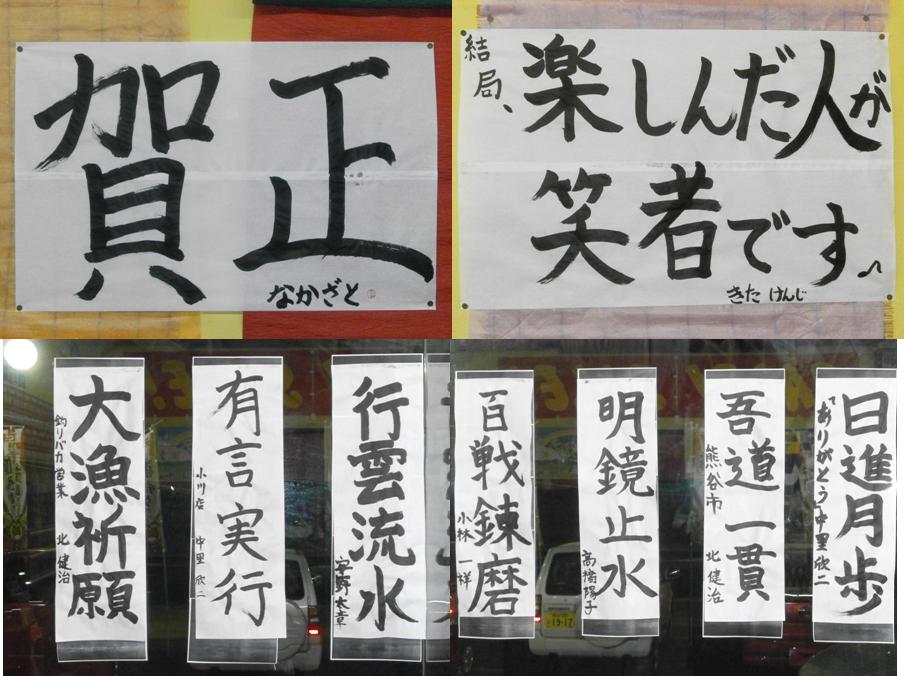 賀正
なかざと
結局、
楽しんだ人が
笑者です。
きた けんじ
大漁祈願
釣りバカ営業 北 健治
有言実行
小川店 中里 欣二
行雲流水
安野太章
百戦錬磨
小林 一祥
明鏡止水
高橋陽子
吾道一貫
熊谷市 北 健治
日進月歩
ありがとう 中里 欣二
19-17